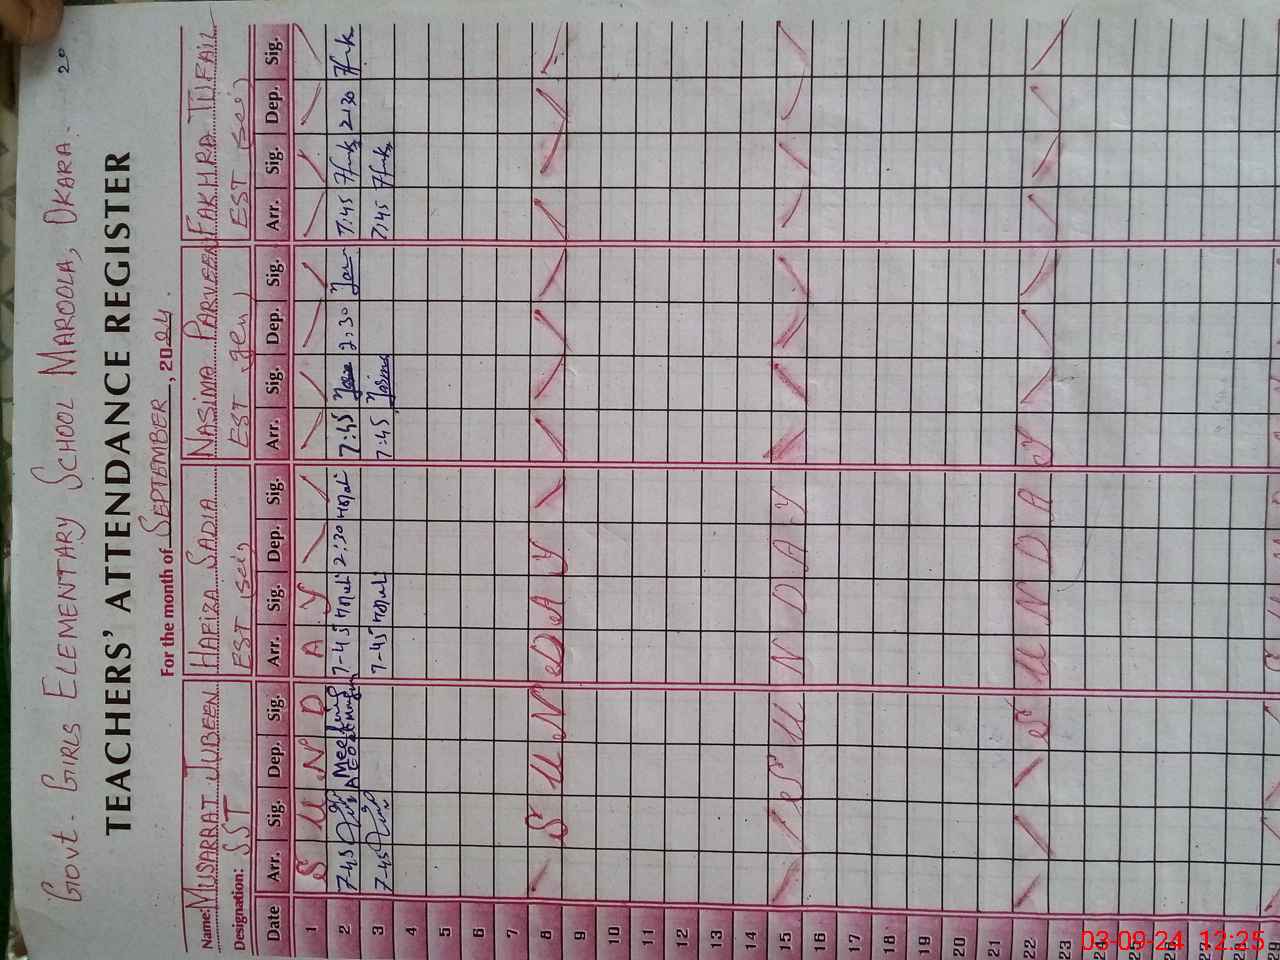 Govt. Girls Elementary School Maroola, Okara.
TEACHERS' ATTENDANCE REGISTER
For the month of SEPTEMBER, 2024.
Name: MUSARRAT JUBEEN HAFIZA SADIA NASIMA PARVEEN FAKHRA TUFAIL
Designation: SST EST (sci) EST (gen) EST (sci)
Date Arr. Sig. Dep. Sig. Arr. Sig. Dep. Sig. Arr. Sig. Dep. Sig. Arr. Sig. Dep. Sig.
1 S U N D A Y
2 7-45 Meeting 7-45 2:30 7:45 2:30 7:45 2:30
3 7-45 7-45 7:45 Nasima 7:45
4
5
6
7
8 S U N D A Y
9
10
11
12
13
14
15 S U N D A Y
16
17
18
19
20
21
22 S U N D A Y
23
24
25
26
27
28
29
03-09-24 12:25